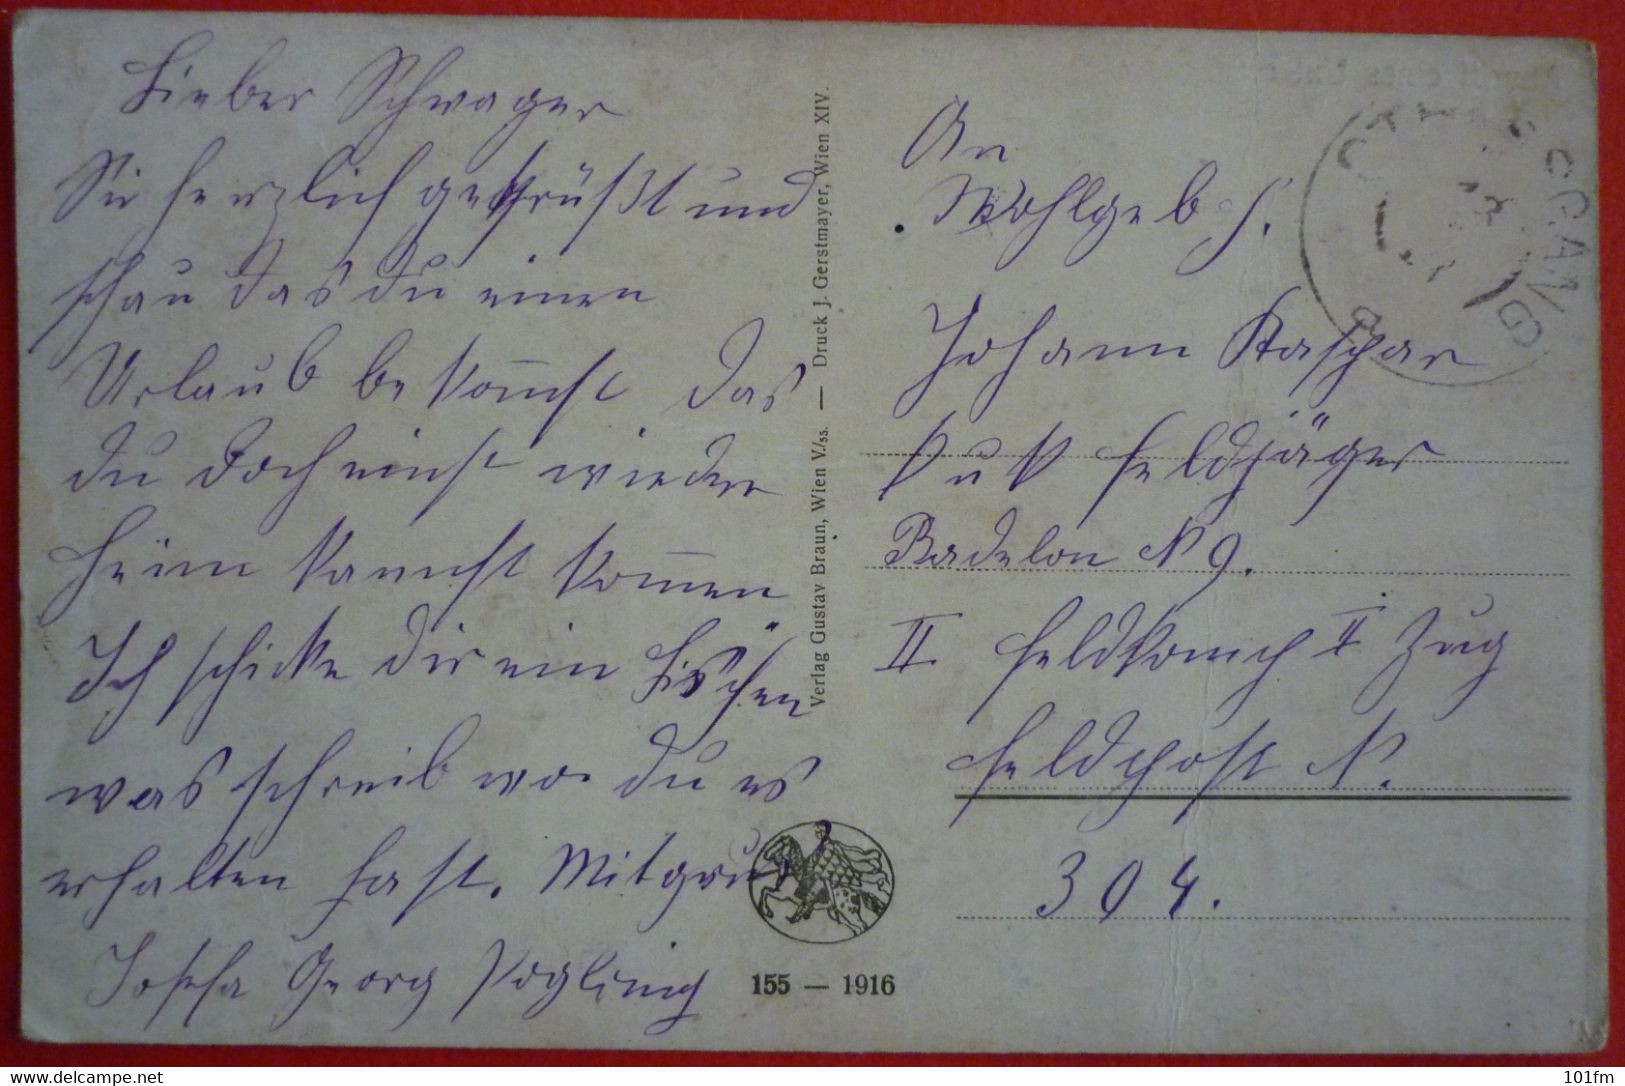 Lieber Schwager
Sei herzlich gegrüßt und
schau das du einen
Urlaub bekommst das
du doch einst wieder
heim kannst kommen
Ich schicke dir ein bischen
was schreib wo du es
erhalten hast. Mitgruß
Josefa Georg Voglinig
Verlag Gustav Braun, Wien V/55. — Druck J. Gerstmayer, Wien XIV.
155 — 1916
An
Wohlgeb H.
Johann Kaspar
k u k Feldjäger
Badelon N 9.
II Feldkomp II Zug
Feldpost N.
304.
delcampe.net
101fm